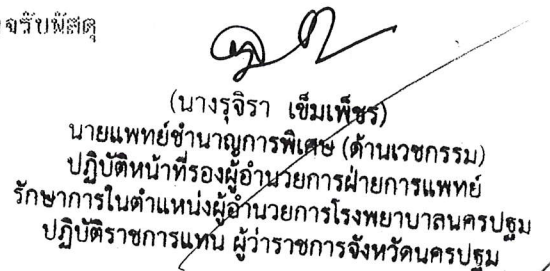 จรับพัสดุ
(นางรุจิรา เข็มเพ็ชร)
นายแพทย์ชำนาญการพิเศษ (ด้านเวชกรรม)
ปฏิบัติหน้าที่รองผู้อำนวยการฝ่ายการแพทย์
รักษาการในตำแหน่งผู้อำนวยการโรงพยาบาลนครปฐม
ปฏิบัติราชการแทน ผู้ว่าราชการจังหวัดนครปฐม